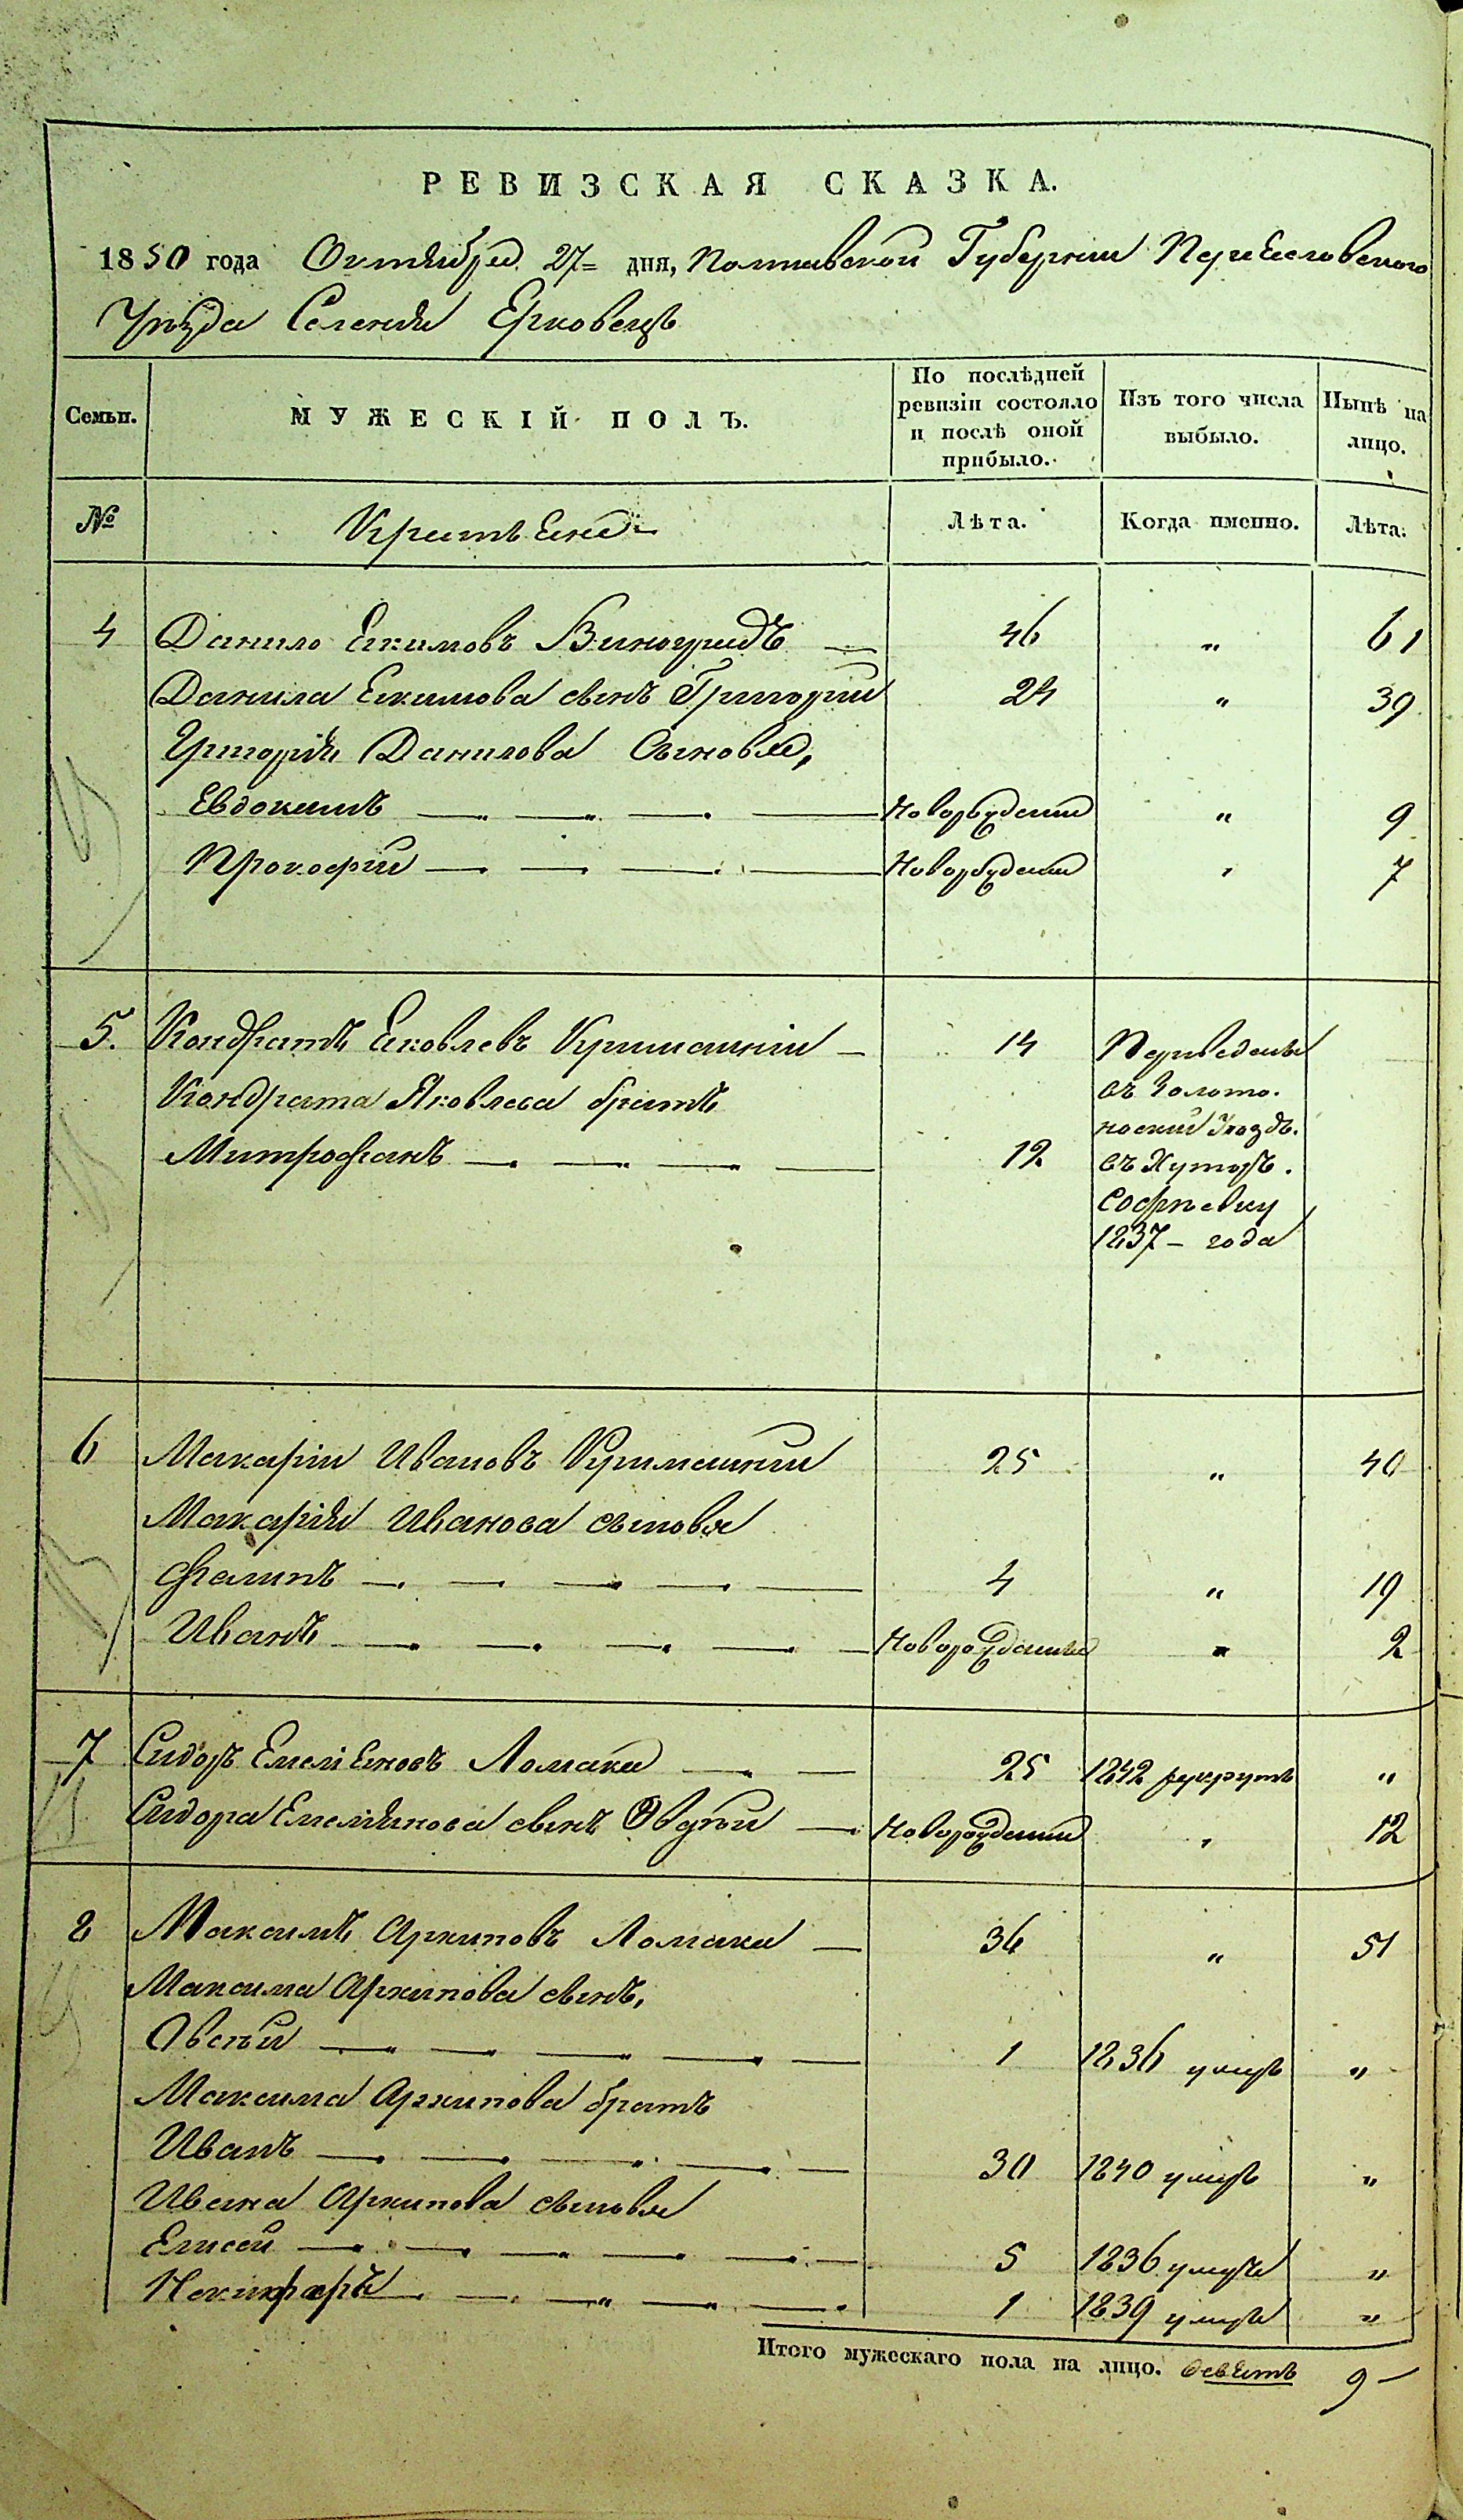 РЕВИЗСКАЯ СКАЗКА.
1850 года Октября 27= дня, Полтавской Губерніи Переяславского
Уѣзда Селенія Ерковецъ
Семьи. МУЖЕСКІЙ ПОЛЪ. По послѣдней ревизіи состояло и послѣ оной прибыло. Изъ того числа выбыло. Нынѣ на лицо.
№ Крестьяне Лѣта. Когда именно. Лѣта.
4 Данило Екимовъ Виноградъ — 46 " 61
Данила Екимова сынъ Григорій 24 " 39
Григорія Данилова Сыновья,
Евдокимъ — — — — Новорожденый " 9
Прокофій — — — — Новорожденый " 7
5. Кондратъ Яковлевъ Кримскій — 14 Переведены
Кондрата Яковлева братъ въ Золото-
ноский Уѣздъ.
Митрофанъ — — — — 12 въ Хуторъ.
Софіевку
1837 – года
6 Макарій Ивановъ 25 " 40
Макарія Иванова сыновья
Филипъ — — — — — 4 " 19
Иванъ — — — — — Новорожденый " 2
7 Сидоръ Емеліяновъ Ломака — — 25 1842 рукрутъ "
Сидора Емеліянова сынъ — Новорожденый " 12
8 Максимъ Архиповъ Ломака — 36 " 51
Максима Архипова сынъ,
Овсѣй — — — — — 1 1836 умеръ "
Максима Архипова братъ
Иванъ — — — — — 30 1840 умеръ "
Ивана Архипова сыновья
Елисей — — — — — — 5 1836 умеръ "
Никифоръ — — — — — 1 1839 умеръ "
Итого мужескаго пола на лицо. девять 9 —